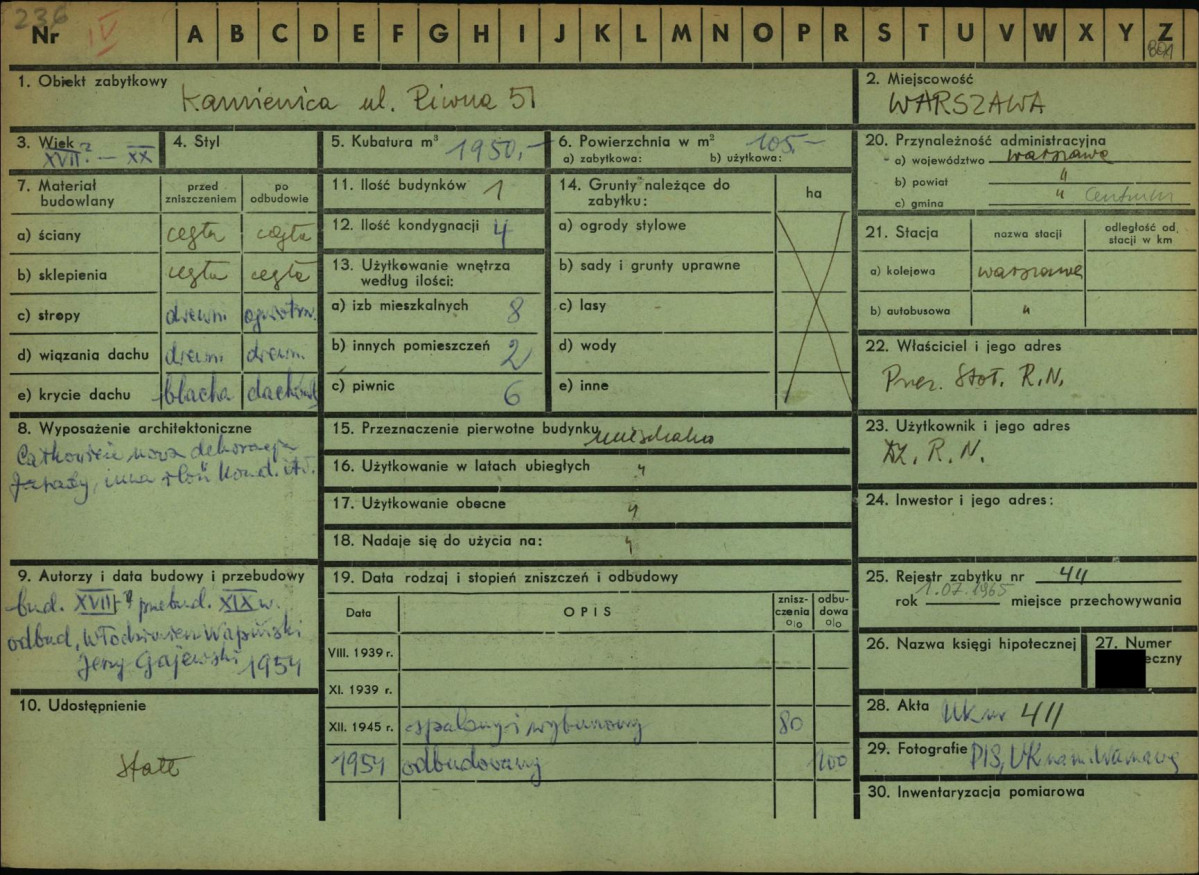 236
Nr IV A B C D E F G H I J K L M N O P R S T U V W X Y Z
1. Obiekt zabytkowy
Kamienica ul. Piwna 51
2. Miejscowość
WARSZAWA
3. Wiek
XVII? — XX
4. Styl
5. Kubatura m³ 1950,-
6. Powierzchnia w m² 105,-
a) zabytkowa: b) użytkowa:
20. Przynależność administracyjna
a) województwo warszawa
b) powiat "
c) gmina " Centrum
7. Materiał budowlany
przed zniszczeniem
po odbudowie
a) ściany cegła cegła
b) sklepienia cegła cegła
c) stropy drewn ogniotrw.
d) wiązania dachu drewn. drewn.
e) krycie dachu blacha dachówk
11. Ilość budynków 1
12. Ilość kondygnacji 4
13. Użytkowanie wnętrza
według ilości:
a) izb mieszkalnych 8
b) innych pomieszczeń 2
c) piwnic 6
14. Grunty należące do
zabytku:
ha
a) ogrody stylowe
b) sady i grunty uprawne
c) lasy
d) wody
e) inne
21. Stacja
nazwa stacji
odległość od
stacji w km
a) kolejowa warszawa
b) autobusowa "
22. Właściciel i jego adres
Prez. Stoł. R.N.
8. Wyposażenie architektoniczne
Całkowicie nowa dekoracja
fasady, inna ilość kond. itd.
15. Przeznaczenie pierwotne budynku mieszkalne
16. Użytkowanie w latach ubiegłych "
17. Użytkowanie obecne "
18. Nadaje się do użycia na: "
23. Użytkownik i jego adres
Dz. R. N.
24. Inwestor i jego adres:
9. Autorzy i data budowy i przebudowy
bud. XVII? przebud. XIX w.
odbud. Włodzimierz Wapiński
Jerzy Gajewski 1954
10. Udostępnienie
stałe
19. Data rodzaj i stopień zniszczeń i odbudowy
Data OPIS
znisz-
czenia
o|o
odbu-
dowa
o|o
VIII. 1939 r.
XI. 1939 r.
XII. 1945 r. spalony i wyburzony 80
1954 odbudowany 100
25. Rejestr zabytku nr 411
1.07.1965
rok miejsce przechowywania
26. Nazwa księgi hipotecznej
27. Numer
eczny
28. Akta UK nr 411
29. Fotografie PIS, UK nam. Warszawę
30. Inwentaryzacja pomiarowa